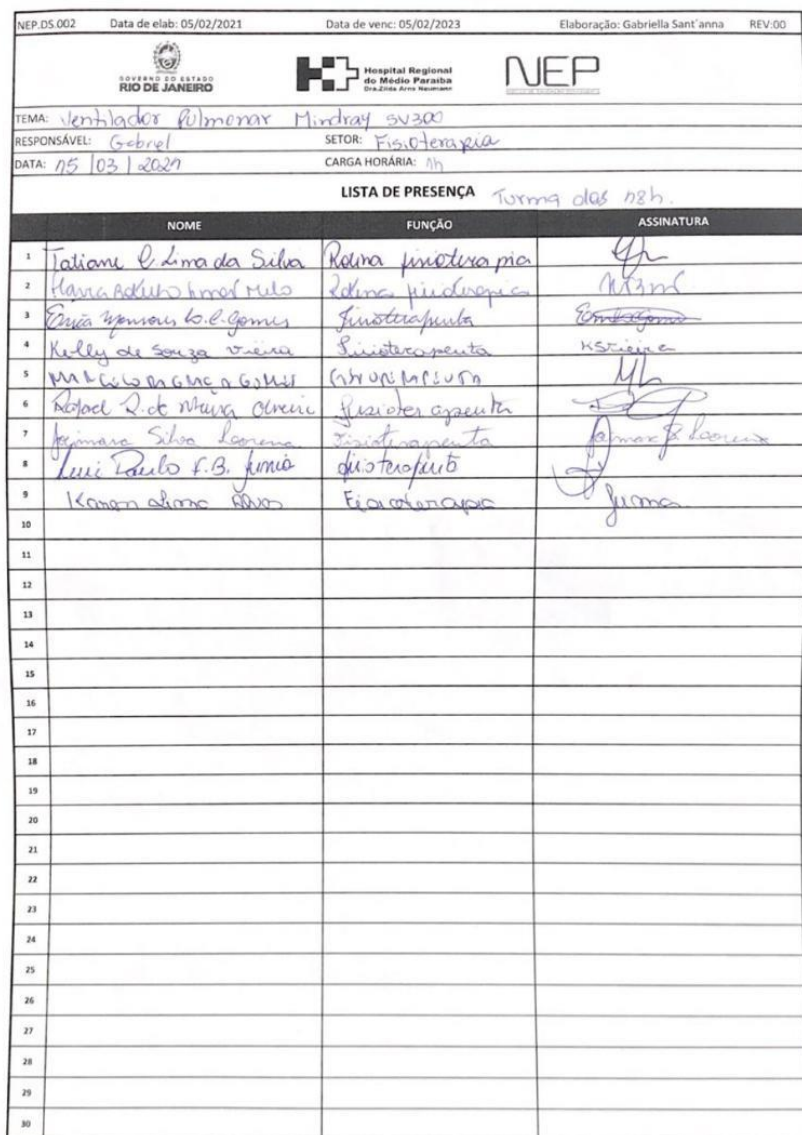 NEP.DS.002 Data de elab: 05/02/2021 Data de venc: 05/02/2023 Elaboração: Gabriella Sant´anna REV:00
GOVERNO DO ESTADO
RIO DE JANEIRO
Hospital Regional
do Médio Paraíba
Dra.Zilda Arns Neumann
NEP
TEMA: Ventilador Pulmonar Mindray SV300
RESPONSÁVEL: Gabriel SETOR: Fisioterapia
DATA: 15/03/2021 CARGA HORÁRIA: 1h
LISTA DE PRESENÇA Turma das 18h.
NOME FUNÇÃO ASSINATURA
1 Tatiane C Lima da Silva Rotina fisioterapia
2 Rotina fisioterapia
3 Gomes Fisioterapeuta
4 Kelly de Souza Vieira Fisioterapeuta KSVieira
5
6 Rafael R. de Oliveira fisioterapeuta
7 Silva Fisioterapeuta
8 Luiz Paulo F.B. Junio fisioterapeuta
9 Lima Alves Fisioterapia
10
11
12
13
14
15
16
17
18
19
20
21
22
23
24
25
26
27
28
29
30